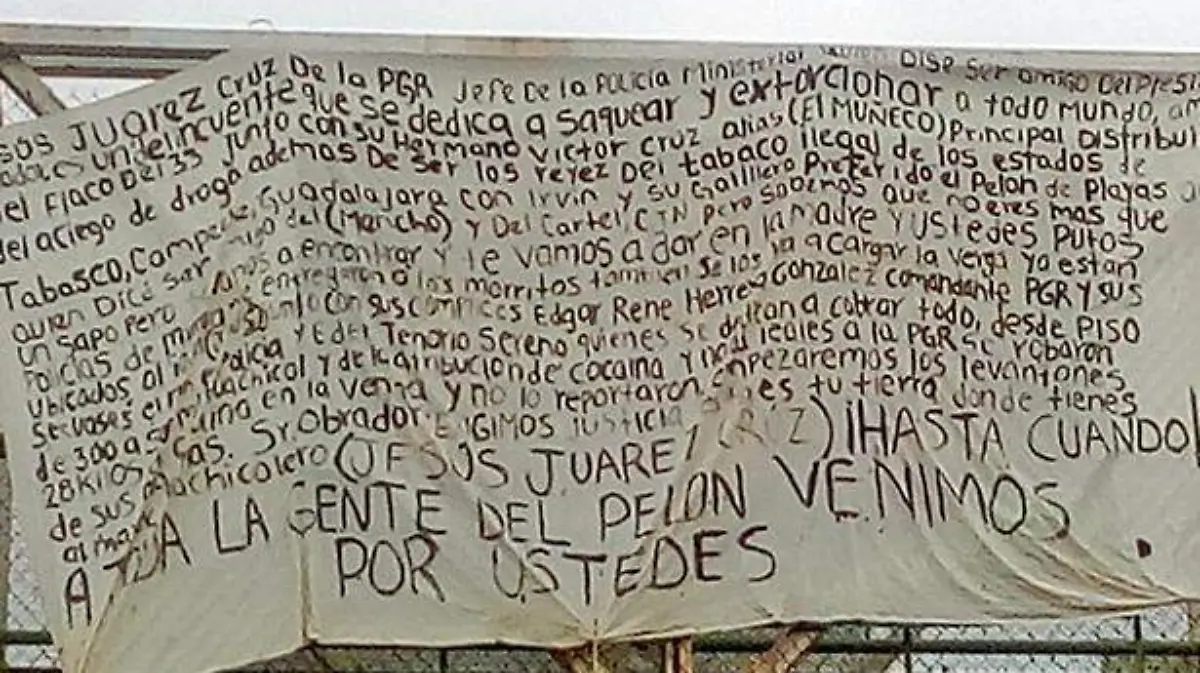 SÚS JUAREZ CRUZ De la PGR Jefe De la Policia Ministerial DISE Ser amigo Del Presi
un delincuente que se dedica a saquear y extorcionar a todo mundo,
el Flaco Del 33 junto con su Hermano Victor Cruz alias (El MUÑECO) Principal Distribui
del aciego de droga ademas De Ser los reyez Del tabaco ilegal de los estados de
Tabasco, Campeche, Guadalajara con Irvin y su Gallliero Preferido el Pelon de Playas
quien Dice Ser amigo del (Mencho) y Del Cartel, CJN pero sabemos que no eres mas que
un sapo Pero vamos a encontrar y te vamos a dar en la madre y ustedes Putos
Policias de entregaron a los morritos tambien se los va a cargar la verga ya estan
Ubicados, al junto con sus complices Edgar Rene Herrera Gonzalez comandante PGR y sus
y Eder Tenorio Sereno quienes se dedican a cobrar todo, desde Piso
de huachicol y de la distribucion de cocaina y leales a la PGR se robaron
28 Kilos en la Venta y no lo reportaron, empezaremos los levantones
de sus Sr. Obrador: EXIGIMOS JUSTICIA es tu tierra donde tienes
al huachicolero (JESUS JUAREZ CRUZ) ¡HASTA CUANDO!
A TODA LA GENTE DEL PELON VENIMOS
POR USTEDES